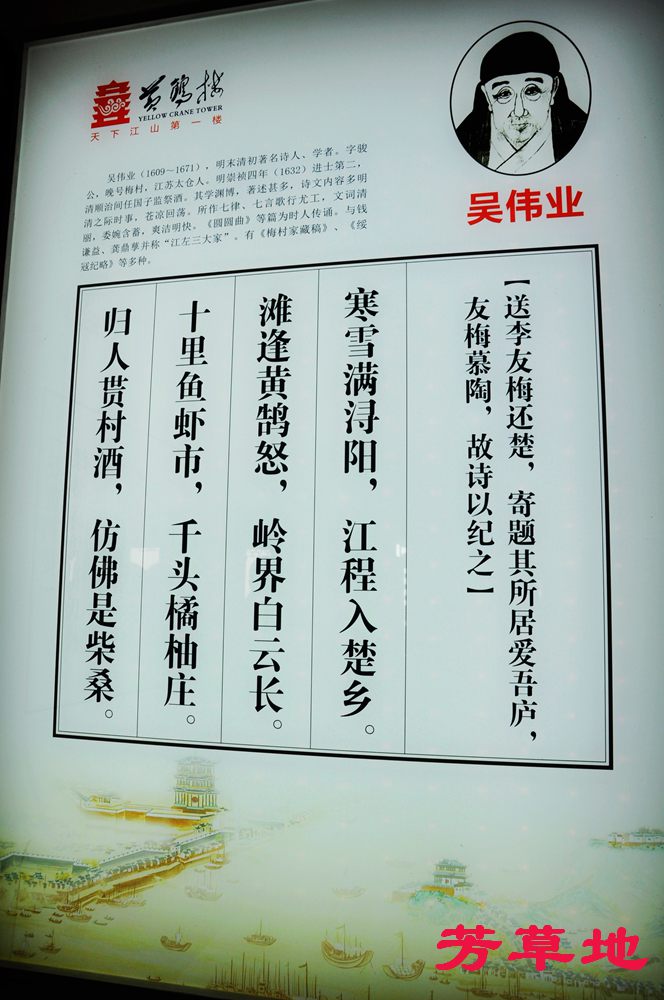 黄鹤楼
YELLOW CRANE TOWER
天下江山第一楼
吴伟业
吴伟业（1609～1671），明末清初著名诗人、学者。字骏
公，晚号梅村，江苏太仓人。明崇祯四年（1632）进士第二，
清顺治间任国子监祭酒。其学渊博，著述甚多，诗文内容多明
清之际时事，苍凉回荡。所作七律、七言歌行尤工，文词清
丽，委婉含蓄，爽洁明快。《圆圆曲》等篇为时人传诵。与钱
谦益、龚鼎孳并称“江左三大家”。有《梅村家藏稿》、《绥
寇纪略》等多种。
【送李友梅还楚，寄题其所居爱吾庐，
友梅慕陶，故诗以纪之】
寒雪满浔阳，江程入楚乡。
滩逢黄鹄怒，岭界白云长。
十里鱼虾市，千头橘柚庄。
归人贳村酒，仿佛是柴桑。
芳草地